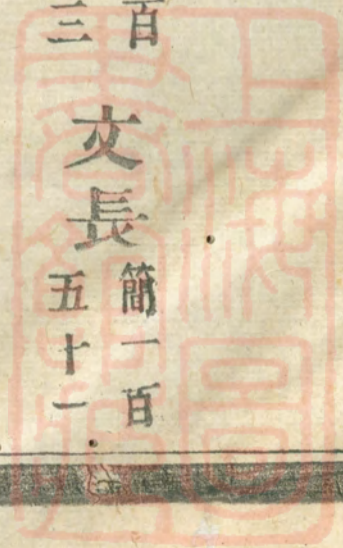 百
三
文長
簡一百
五十一
上海圖
書館藏